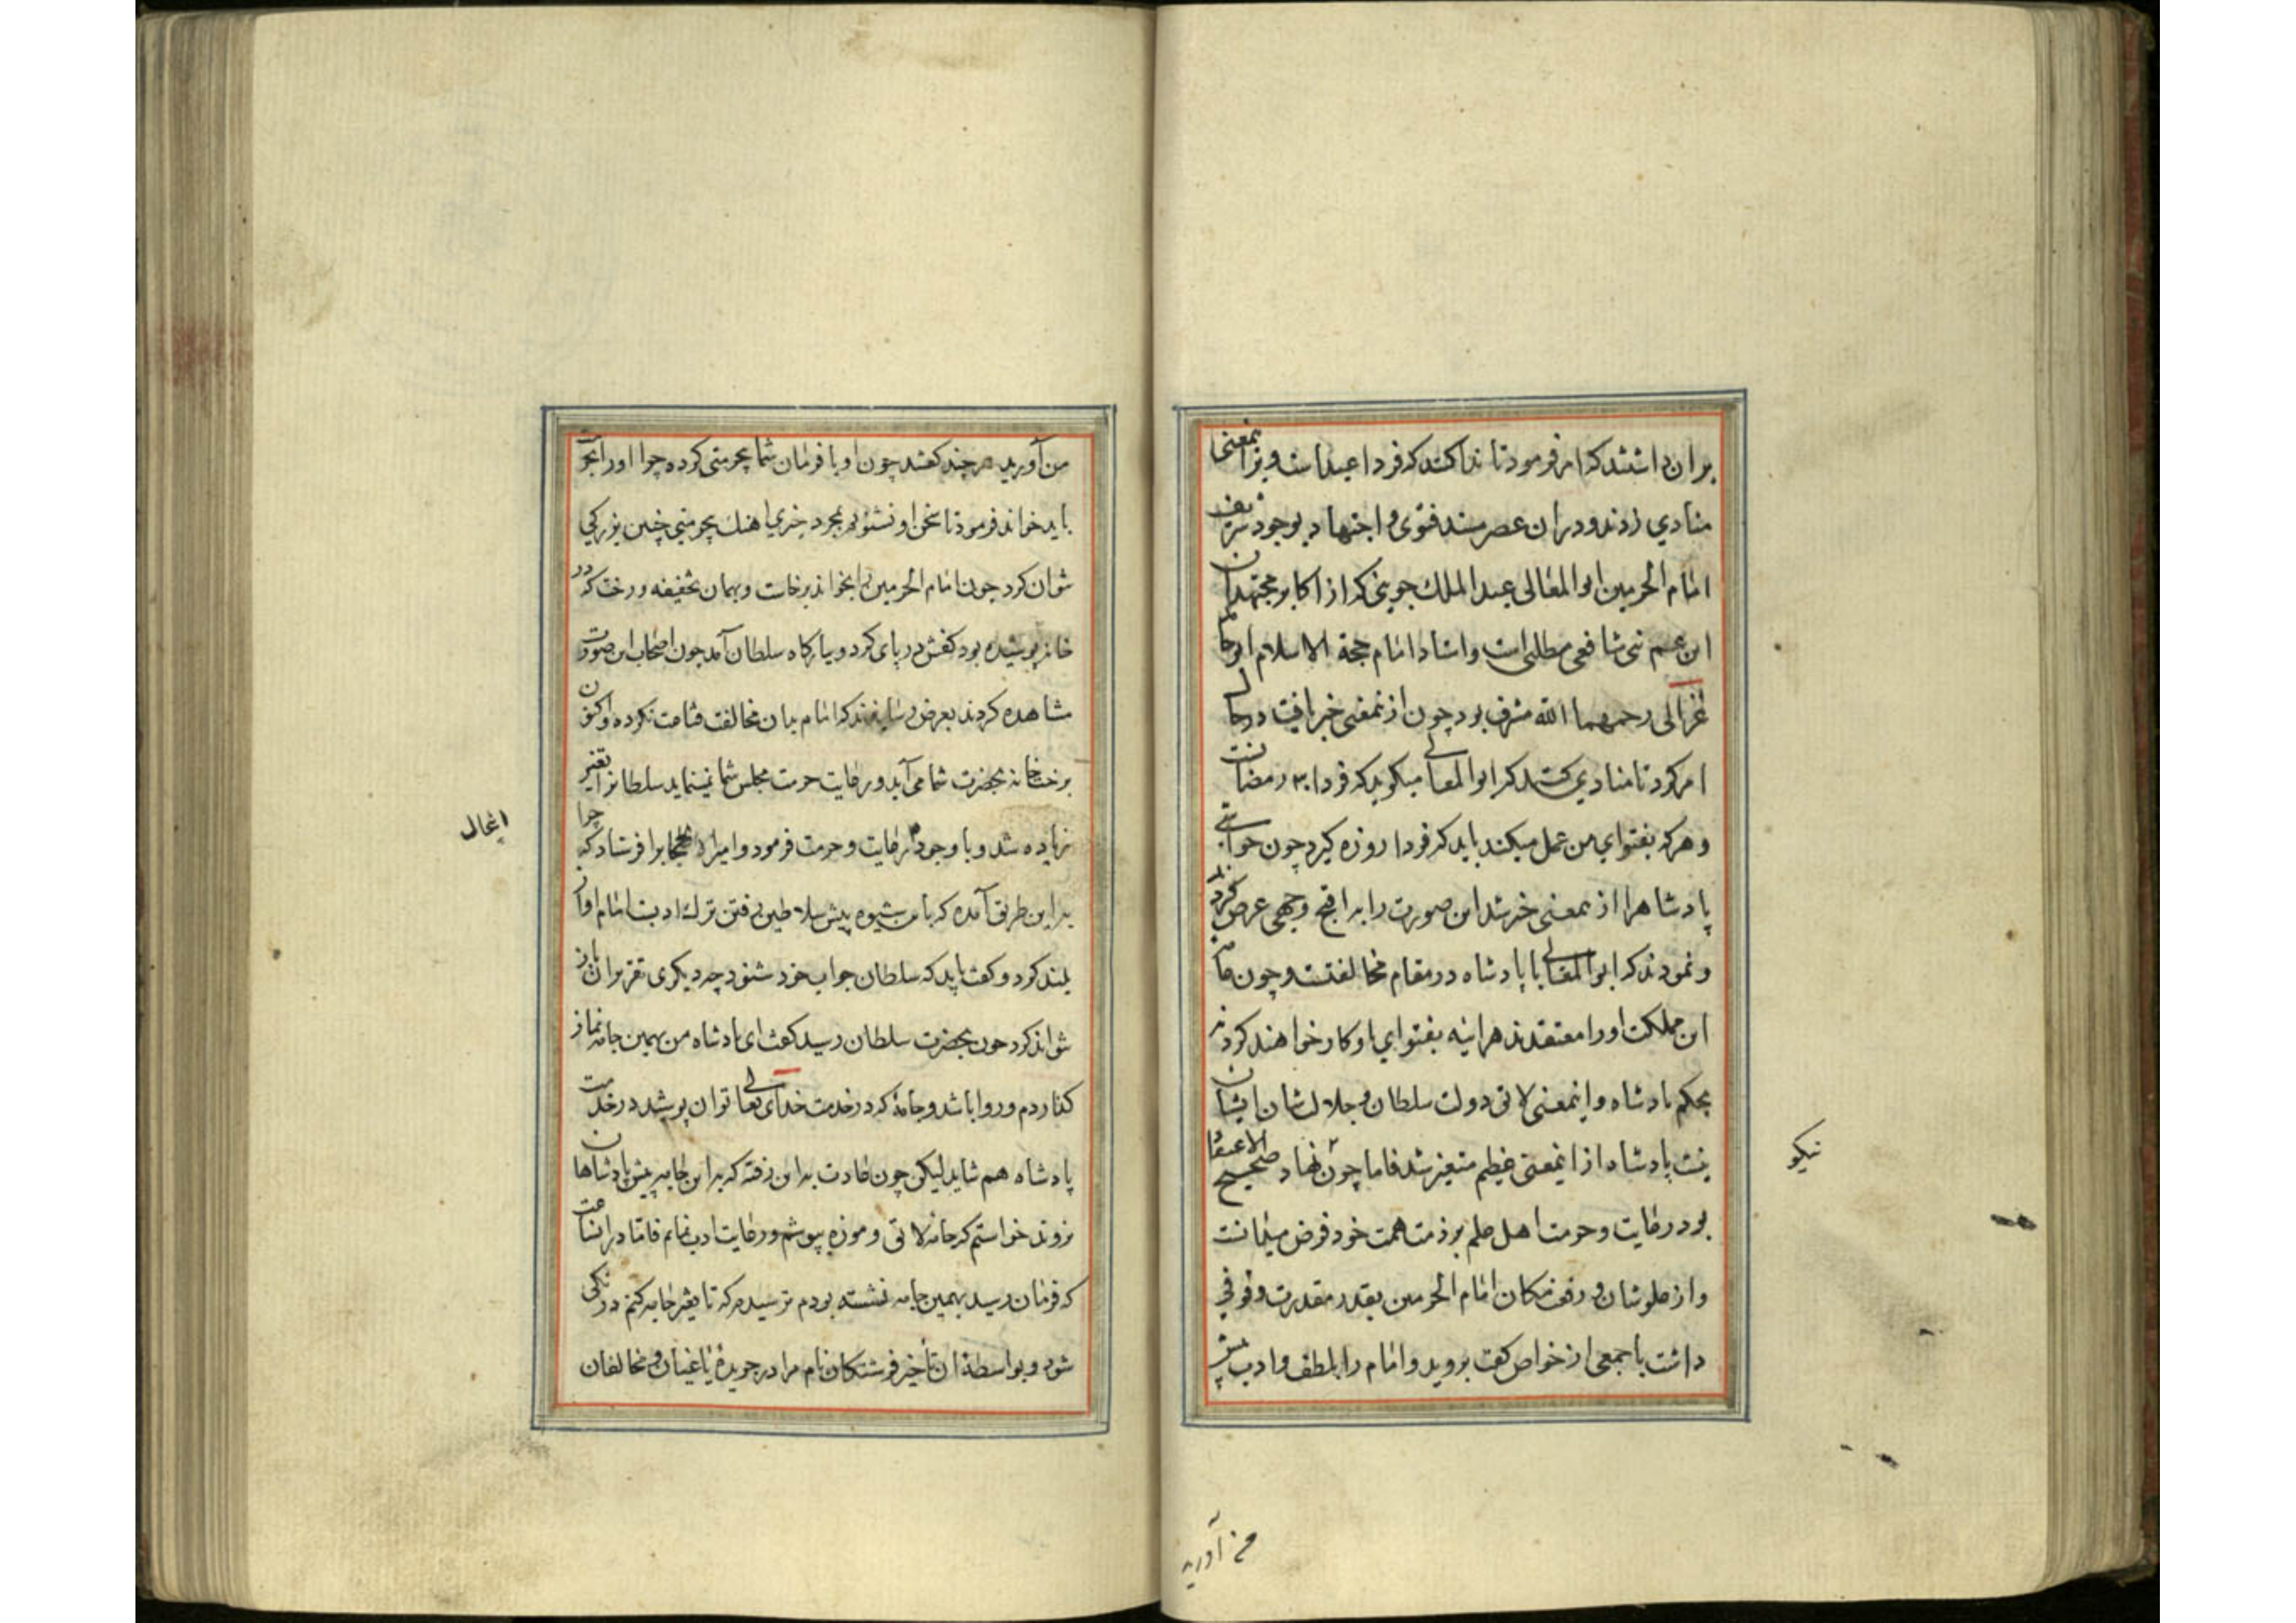 بران داشتند که امر فرمود تا ندا کنند که فردا عید است و بر اینمعنی
منادی زدند و دران عصر مسند فتوی و اجتهاد بوجود شریف
امام الحرمین ابو المعالی عبد الملک جوینی که از اکابر مجتهدان
ابن عم نبی شافعی مطلبی است و استاد امام حجة الاسلام ابو حامد
غزالی رحمهما الله مشرف بود چون ازینمعنی خبر یافت در حال
امر کرد تا منادی کنند که ابو المعالی میکوید که فردا ۳۰ رمضانست
و هر که بفتوای من عمل میکند باید که فردا روزه کیرد چون حواشی
پادشاه را از اینمعنی خبر شد این صورت را به اقبح وجهی عرض کردند
و نمودند که ابو المعالی با پادشاه در مقام مخالفتست و چون عامه
این مملکت او را معتقدند هراینه بفتوای او کار خواهند کرد نه
بحکم پادشاه و اینمعنی لائق دولت سلطان و جلال شان ایشان
نیست پادشاه از اینمعنی عظیم متغیر شد فاما چون نهاد صحیح الاعتقاد
بود و رعایت و حرمت اهل علم بر ذمت همت خود فرض میدانست
و از علو شان و رفعت مکان امام الحرمین بقدر مقدرت وقوفی
داشت با جمعی از خواص کفت بروید و امام را بلطف و ادب پیش
نیکو
من آورید
من آورید هر چند کفتند چون او با فرمان شما بیحرمتی کرده چرا او را بحرمت
باید خواند فرمود تا سخن او نشنویم بمجرد خبری اهنک بیحرمتی چنین بزرکی
نتوان کرد چون امام الحرمین را بخواندند برخاست و بهمان تخفیفه و رخت که در
خانه پوشیده بود کفش در پای کرد و ببارکاه سلطان آمد چون اصحاب این صورت
مشاهده کردند بعرض رسانیدند که امام بدان مخالفت قناعت نکرده و اکنون
برخت خانه بحضرت شما می آید و رعایت حرمت مجلس شما نمینماید سلطانرا تغیر
زیاده شد و با وجود آن رعایت و حرمت فرمود و امیر حاجب را فرستاد که چرا
بدین طریق آمده که باین شیوه پیش سلاطین رفتن ترک ادبست امام آواز
بلند کرد و کفت باید که سلطان جواب خود شنود چه دیکری تقریر آن باز
نتواند کرد چون بحضرت سلطان رسید کفت ای پادشاه من بهمین جامه نماز
کذاردم و روا باشد و جامهٔ که در خدمت خدای تعالی توان پوشید در خدمت
پادشاه هم شاید لیکن چون عادت بدین رفته که بدین جامه پیش پادشاهان
نروند خواستم که جامه لائق و موزه بپوشم و رعایت ادب نمایم فاما در انساعت
که فرمان رسید بهمین جامه نشسته بودم ترسیدم که تا تغییر جامه کنم درنکی
شود و بواسطهٔ ان تأخیر فرشتکان نام مرا در جریدهٔ یاغیان و مخالفان